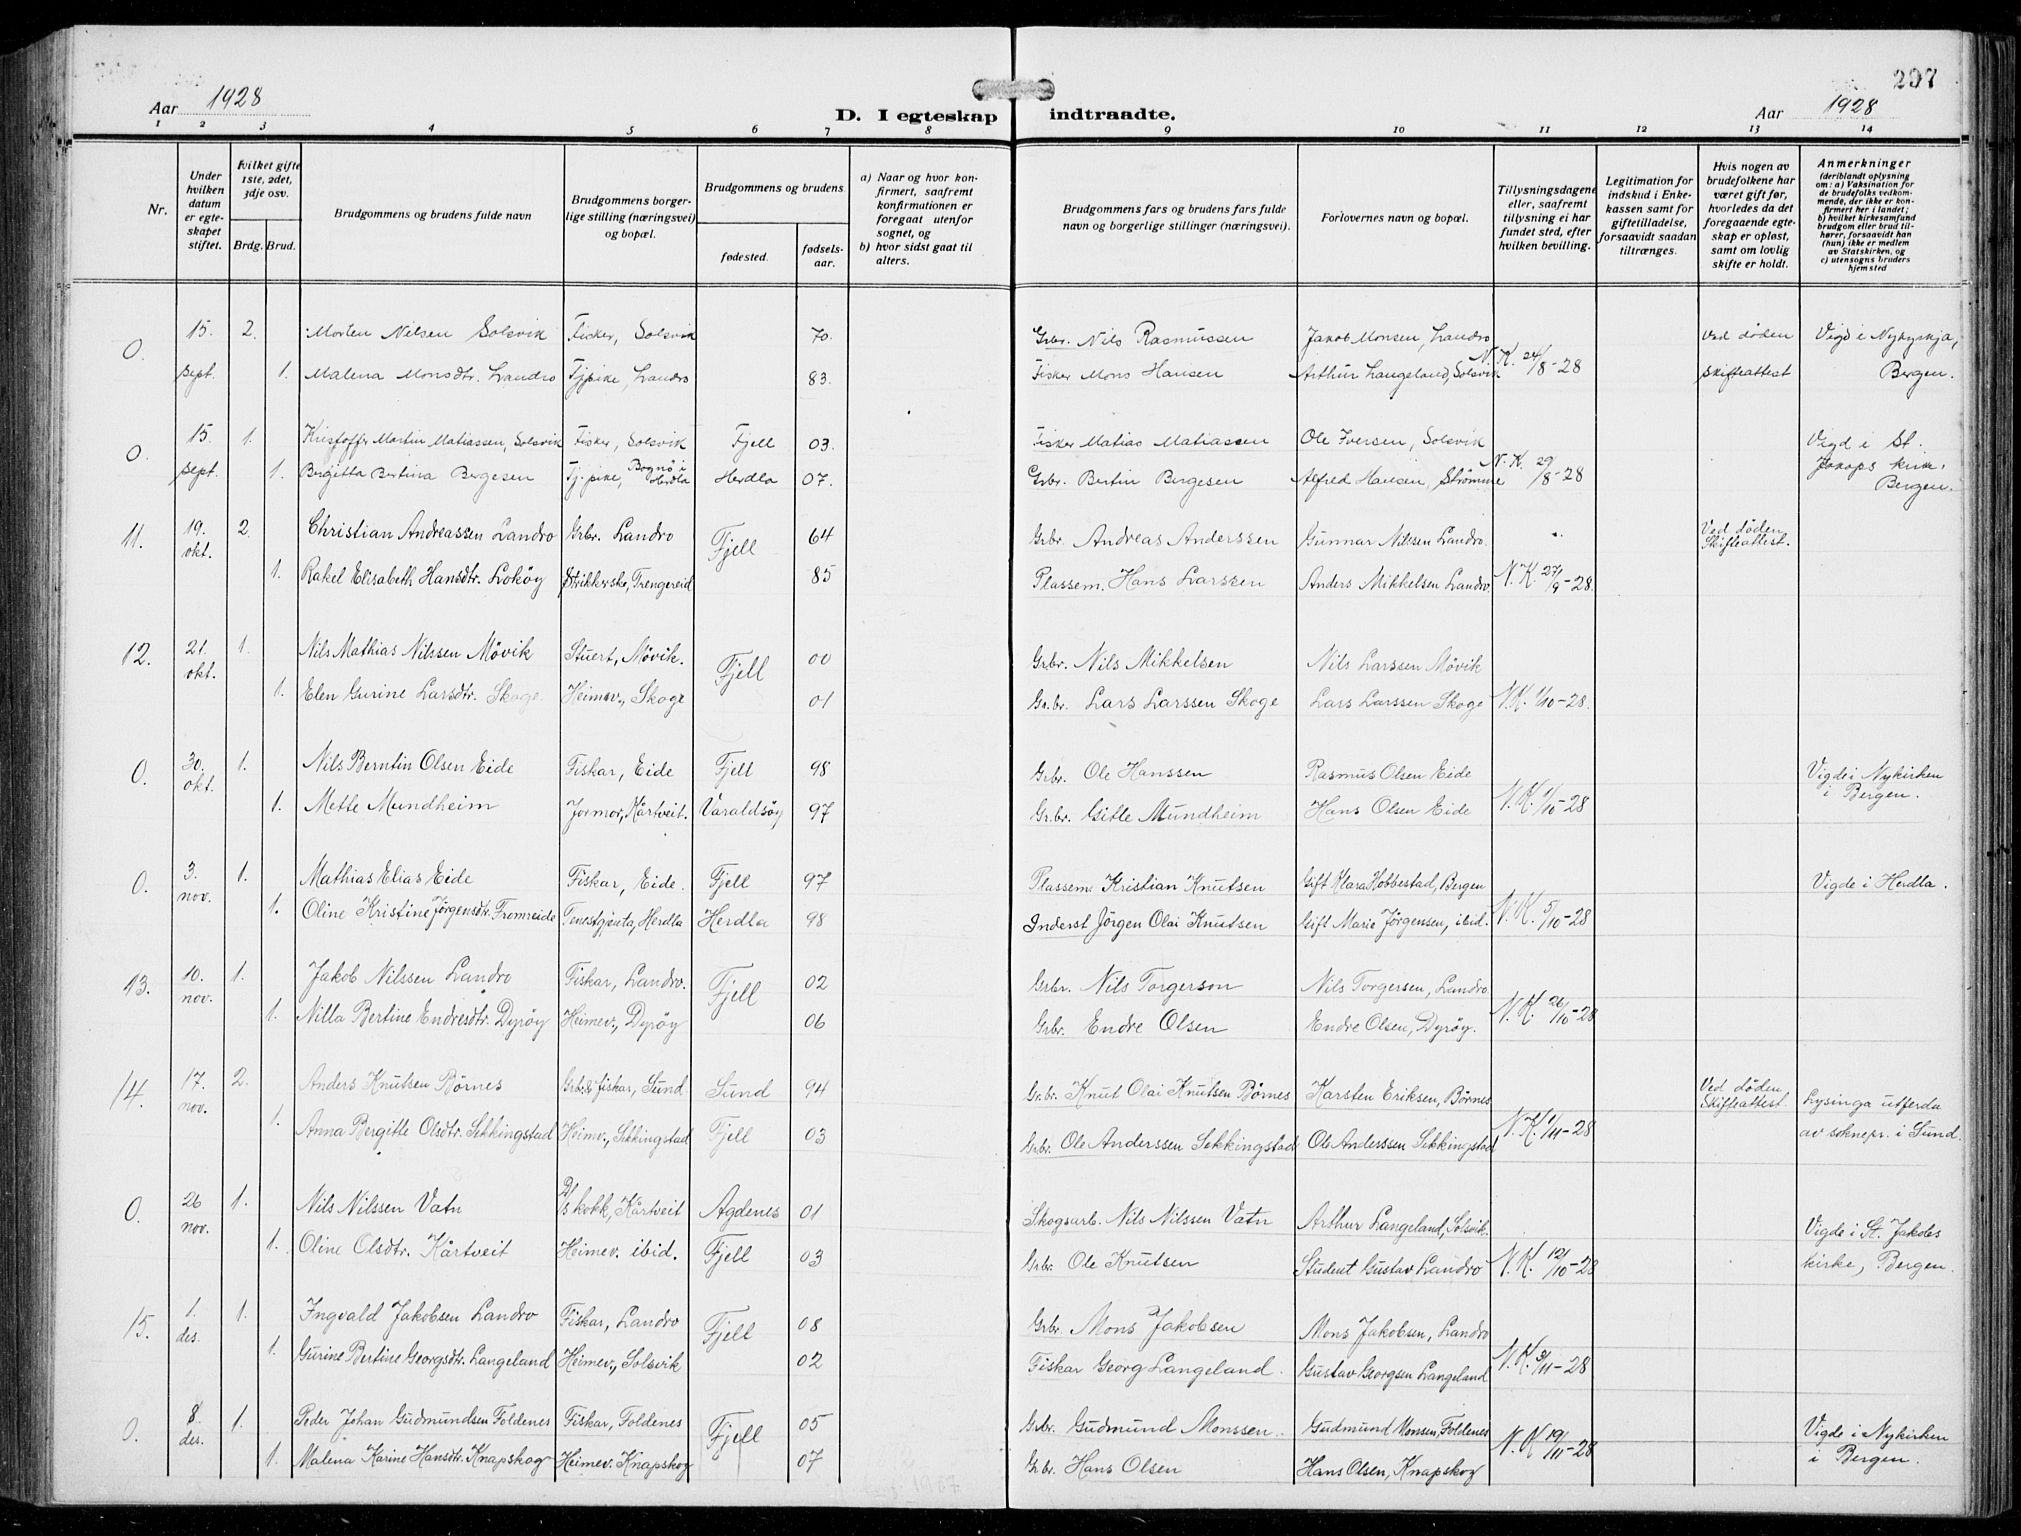 297
Aar 1928
D. I egteskap indtraadte.
Aar 1928
1 2 3 4 5 6 7 8 9 10 11 12 13 14
Nr.
Under hvilken datum er egteskapet stiftet.
Hvilket gifte 1ste, 2det, 3dje osv.
Brdg. Brud.
Brudgommens og brudens fulde navn
Brudgommens borgerlige stilling (næringsvei) og bopæl.
Brudgommens og brudens
fødested.
fødselsaar.
a) Naar og hvor konfirmert, saafremt konfirmationen er foregaat utenfor sognet, og
b) hvor sidst gaat til alters.
Brudgommens fars og brudens fars fulde navn og borgerlige stillinger (næringsvei).
Forlovernes navn og bopæl.
Tillysningsdagene eller, saafremt tillysning ei har fundet sted, efter hvilken bevilling.
Legitimation for indskud i Enkekassen samt for giftetilladelse, forsaavidt saadan tiltrænges.
Hvis nogen av brudefolkene har været gift før, hvorledes da det foregaaende egteskap er opløst, samt om lovlig skifte er holdt.
Anmerkninger (deriblandt oplysning om: a) Vaksination for de brudefolks vedkommende, der ikke er konfirmert her i landet; b) hvilket kirkesamfund brudgom eller brud tilhører, forsaavidt han (hun) ikke er medlem av Statskirken, og c) utensogns bruders hjemsted
0. 15. 2. Morten Nilsen Solsvik Fisker, Solsvik 70. Grbr. Nils Rasmussen Jakob Monsen, Landro ved döden Vigd i Nykyrkja,
sept. 1. Malena Monsdtr. Landro Tj pike, Landro 83. Fisker Mons Hansen Arthur Langeland, Solsvik N. K. 24/8-28 skifteattest Bergen.
0. 15. 1. Kristoffer Martin Matiassen, Solsvik Fisker, Solsvik Fjell 03. Fisker Matias Matiassen Ole Iversen, Solsvik Vigd i St.
sept. 1. Bergitta Bertina Bergesen Tj. pike, Bognö i Herdla Herdla 07. Grbr. Bertin Bergesen Alfred Hansen, Strömme N. K. 29/8-28 Jakops kirke, Bergen.
11. 19. okt. 2. Christian Andreassen Landro Grbr. Landro Fjell 64 Grbr. Andreas Anderssen Gunnar Nilssen Landro. Ved döden Skifteattest.
1. Rakel Elisabeth Hansdtr. Loköy Strikkerske, Trengereid 85 Plassem. Hans Larssen Anders Mikkelsen Landro. N. K. 27/9-28.
12. 21. okt. 1. Nils Mathias Nilssen Mövik Stuert, Mövik. Fjell 00 Grbr. Nils Mikkelsen Nils Larssen Mövik
1. Elen Gurine Larsdtr. Skoge. Heimev., Skoge 01 Gr.br. Lars Larssen Skoge Lars Larssen Skoge N. K. 1/10-28.
0. 30. okt. 1. Nils Berntin Olsen Eide Fiskar, Eide Fjell 98 Grbr. Ole Hanssen Rasmus Olsen Eide Vigde i Nykirken
1. Mette Mundheim Jormor, Kårtveit. Varaldsöy 97 Gr.br. Gitle Mundheim Hans Olsen Eide N. K. 1/10-28 i Bergen.
0. 3. nov. 1. Mathias Elias Eide Fiskar, Eide. Fjell 97 Plassem. Kristian Knutsen Gift Klara Hobbestad, Bergen Vigde i Herdla.
1. Oline Kristine Jörgensdtr. Fromreide Tenestgjenta, Herdla Herdla 98 Inderst Jörgen Olai Knutsen Gift Marie Jörgensen, ibid. N. K. 5/10-28
13. 10. nov. 1. Jakob Nilssen Landro Fiskar, Landro. Fjell 02 Grbr. Nils Torgerson Nils Torgersen, Landro
1. Nilla Bertine Endresdtr. Dyröy Heimev., Dyröy 06 Grbr. Endre Olsen Endre Olsen, Dyröy. N. K. 26/10-28
14. 17. nov. 2. Anders Knutsen Börnes Grbr. & fiskar, Sund. Sund 94 Gr.br. Knut Olai Knutsen Börnes Karsten Eriksen, Börnes Ved döden, Skifteattest Lysinga utferda
1. Anna Bergitte Olsdtr. Sekkingstad Heimv., Sekkingstad Fjell 03 Grbr. Ole Anderssen Sekkingstad Ole Anderssen Sekkingstad N. K. 1/11-28 av soknepr. i Sund.
0. 26 nov. 1. Nils Nilssen Vatn D/S kokk, Kårtveit Agdenes 01 Skogsarb. Nils Nilssen Vatn Arthur Langeland, Solsvik. Vigde i St. Jakobs
1. Oline Olsdtr. Kårtveit Heimev. ibid. Fjell 03 Grbr. Ole Knutsen Student Gustav Landro N. K. 12/10-28 kirke, Bergen.
15. 1. des. 1. Ingvald Jakobsen Landro Fiskar, Landro Fjell 08 Grbr. Mons Jakobsen Mons Jakobsen, Landro
1. Gurine Bertine Georgsdtr. Langeland Heimev., Solsvik 02 Fiskar Georg Langeland. Gustav Georgsen Langeland N. K. 3/11-28
0. 8. des. 1. Peder Johan Gudmundsen Foldenes Fiskar, Foldenes Fjell 05 Grbr. Gudmund Monssen. Gudmund Monsen, Foldenes Vigde i Nykirken
1. Malena Karine Hansdtr. Knapskog Heimev. Knapskog 07 Gr.br. Hans Olsen Hans Olsen, Knapskog N. K. 19/11-28 i Bergen.